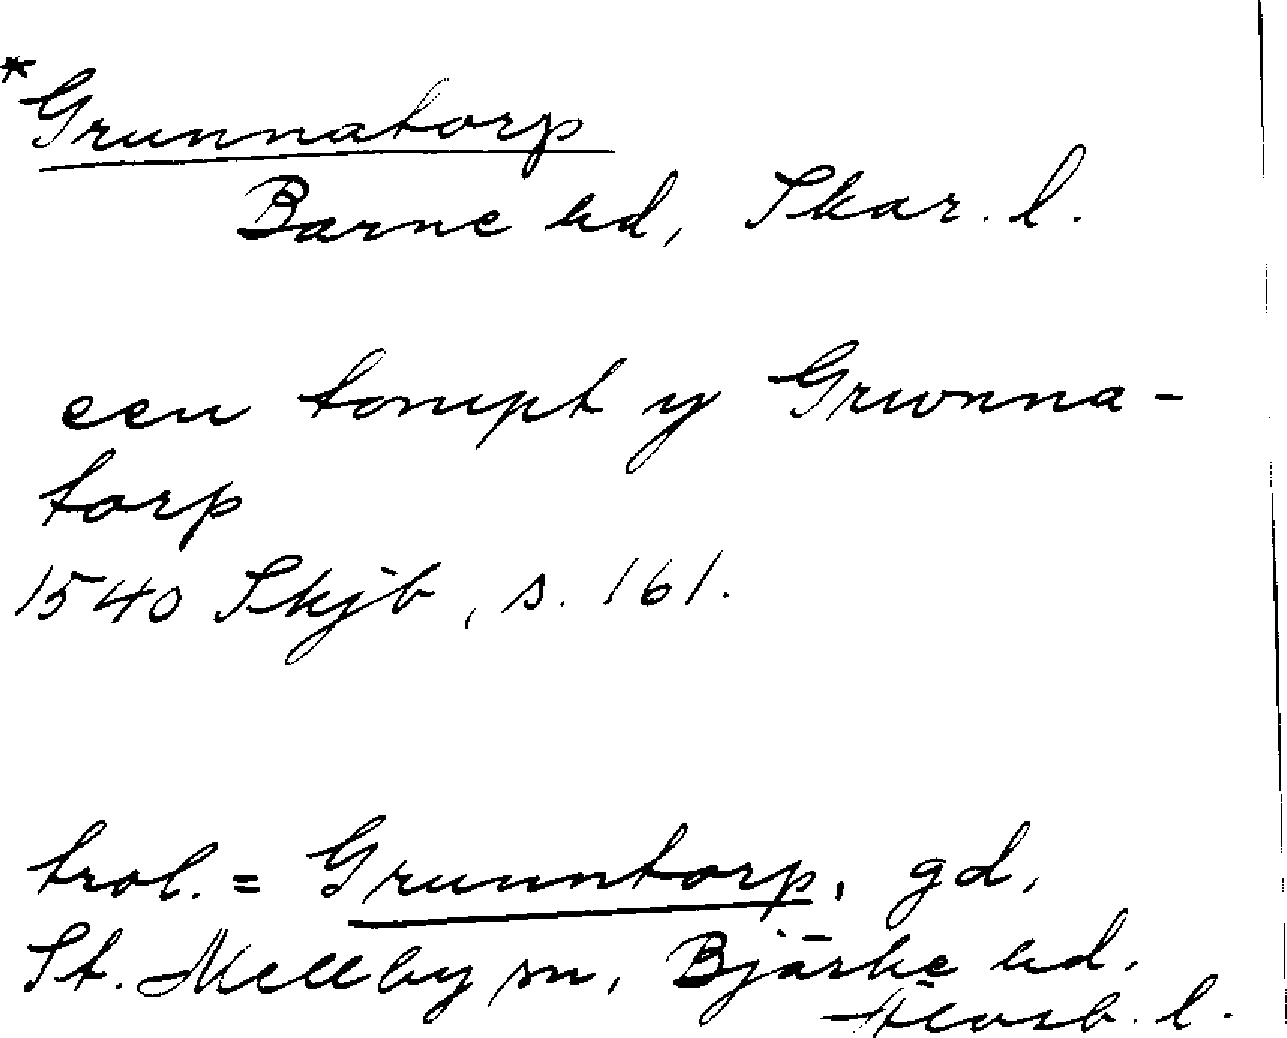 *Grunnatorp
Barne hd, Skar. l.
een tompt y Grwnna-
torp
1540 Skjb, s. 161.
trol. = Grunntorp, gd,
St. Mellby sn, Bjärke hd.
Älvsb. l.